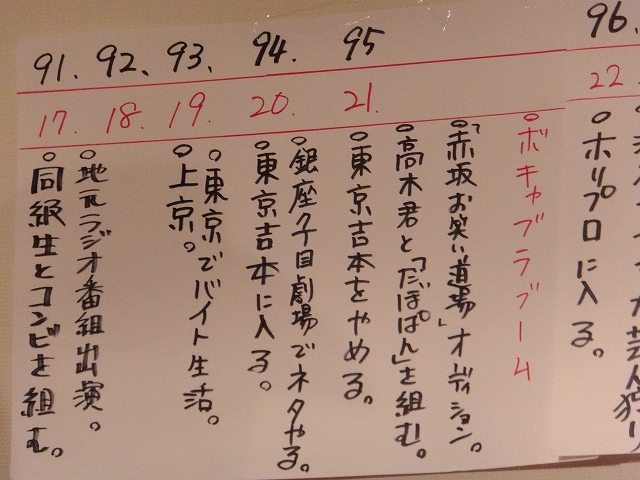 91. 92、 93、 94. 95 96.
17. 18. 19. 20. 21. 22
○同級生とコンビを組む。
○地元ラジオ番組出演。
○上京。
○東京でバイト生活。
○東京吉本に入る。
○銀座7丁目劇場でネタやる。
○東京吉本をやめる。
○高木君と「だぽぱん」を組む。
○「赤坂お笑い道場」オーディション。
○ボキャブラブーム
○ホリプロに入る。